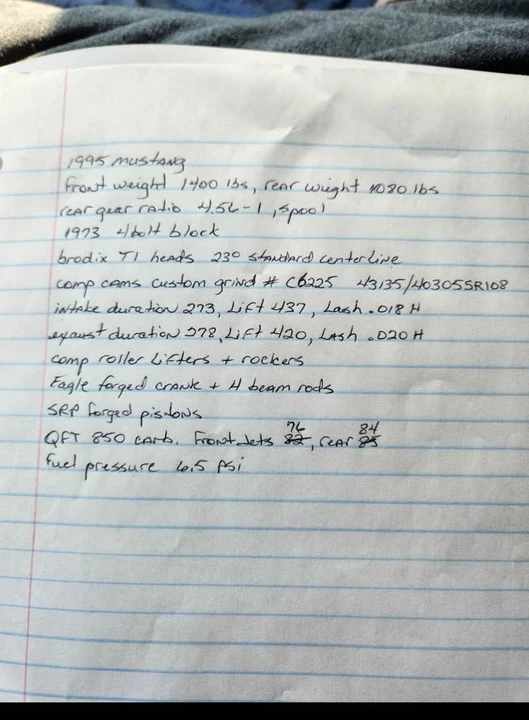 1995 mustang
front weight 1400 lbs, rear wieght 1080 lbs
rear gear ratio 4.56-1, spool
1973 4bolt block
brodix T1 heads 23° standard centerline
comp cams custom grind # C6225 43135/40305SR108
intake duration 273, Lift 437, Lash .018 H
exaust duration 278, Lift 420, Lash .020 H
comp roller Lifters + rockers
Eagle forged crank + H beam rods
SRP forged pistons
76 84
QFT 850 carb. Front Jets 82, rear 85
fuel pressure 6.5 psi